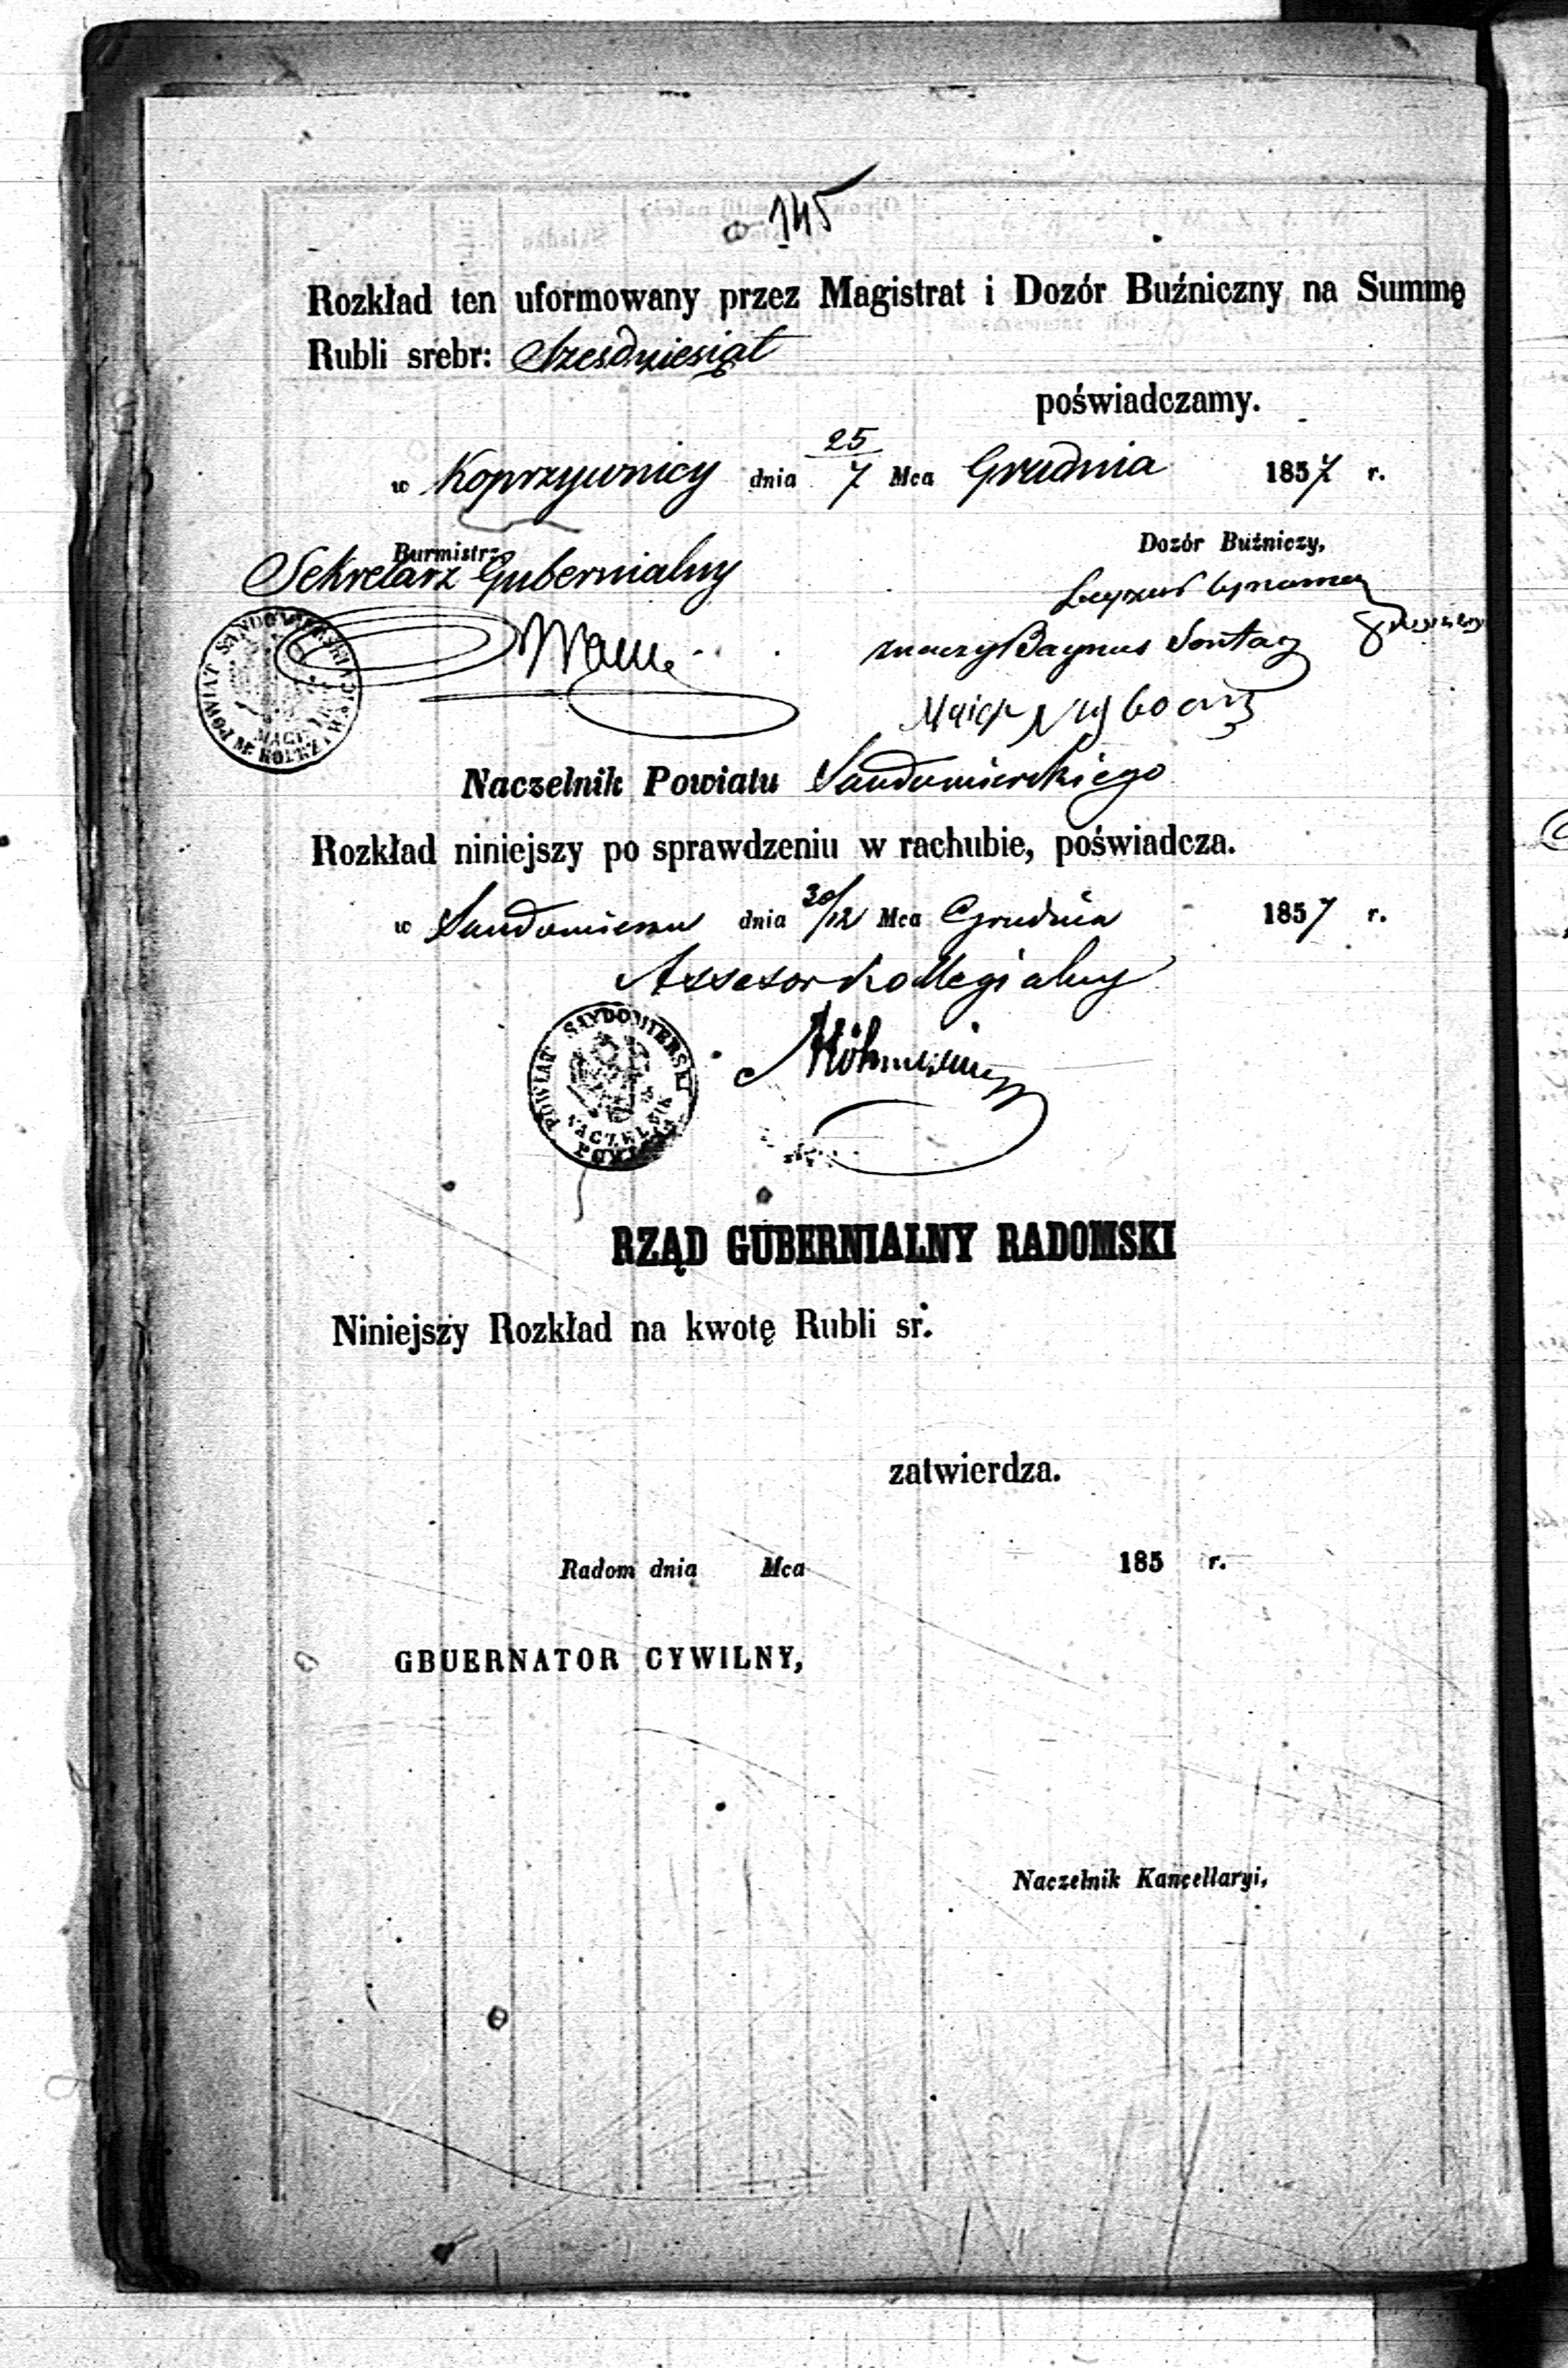 145
Rozkład ten uformowany przez Magistrat i Dozór Buźniczny na Summę
Rubli srebr: Szesdziesiąt
poświadczamy.
w Koprzywnicy dnia 25/7 Mca Grudnia 1857 r.
Burmistrz
Dozór Buźniczy,
Sekretarz Gubernialny
Sontag
POWIAT SANDOMIERSKI
Naczelnik Powiatu Sandomierskiego
Rozkład niniejszy po sprawdzeniu w rachubie, poświadcza.
w Sandomierzu dnia 30/12 Mca Grudnia 1857 r.
Assesor Kollegialny
POWIAT SANDOMIERSKI
NACZELNIK POWIATU
RZĄD GUBERNIALNY RADOMSKI
Niniejszy Rozkład na kwotę Rubli sr.
zatwierdza.
Radom dnia Mca 185 r.
GBUERNATOR CYWILNY,
Naczelnik Kancellaryi,